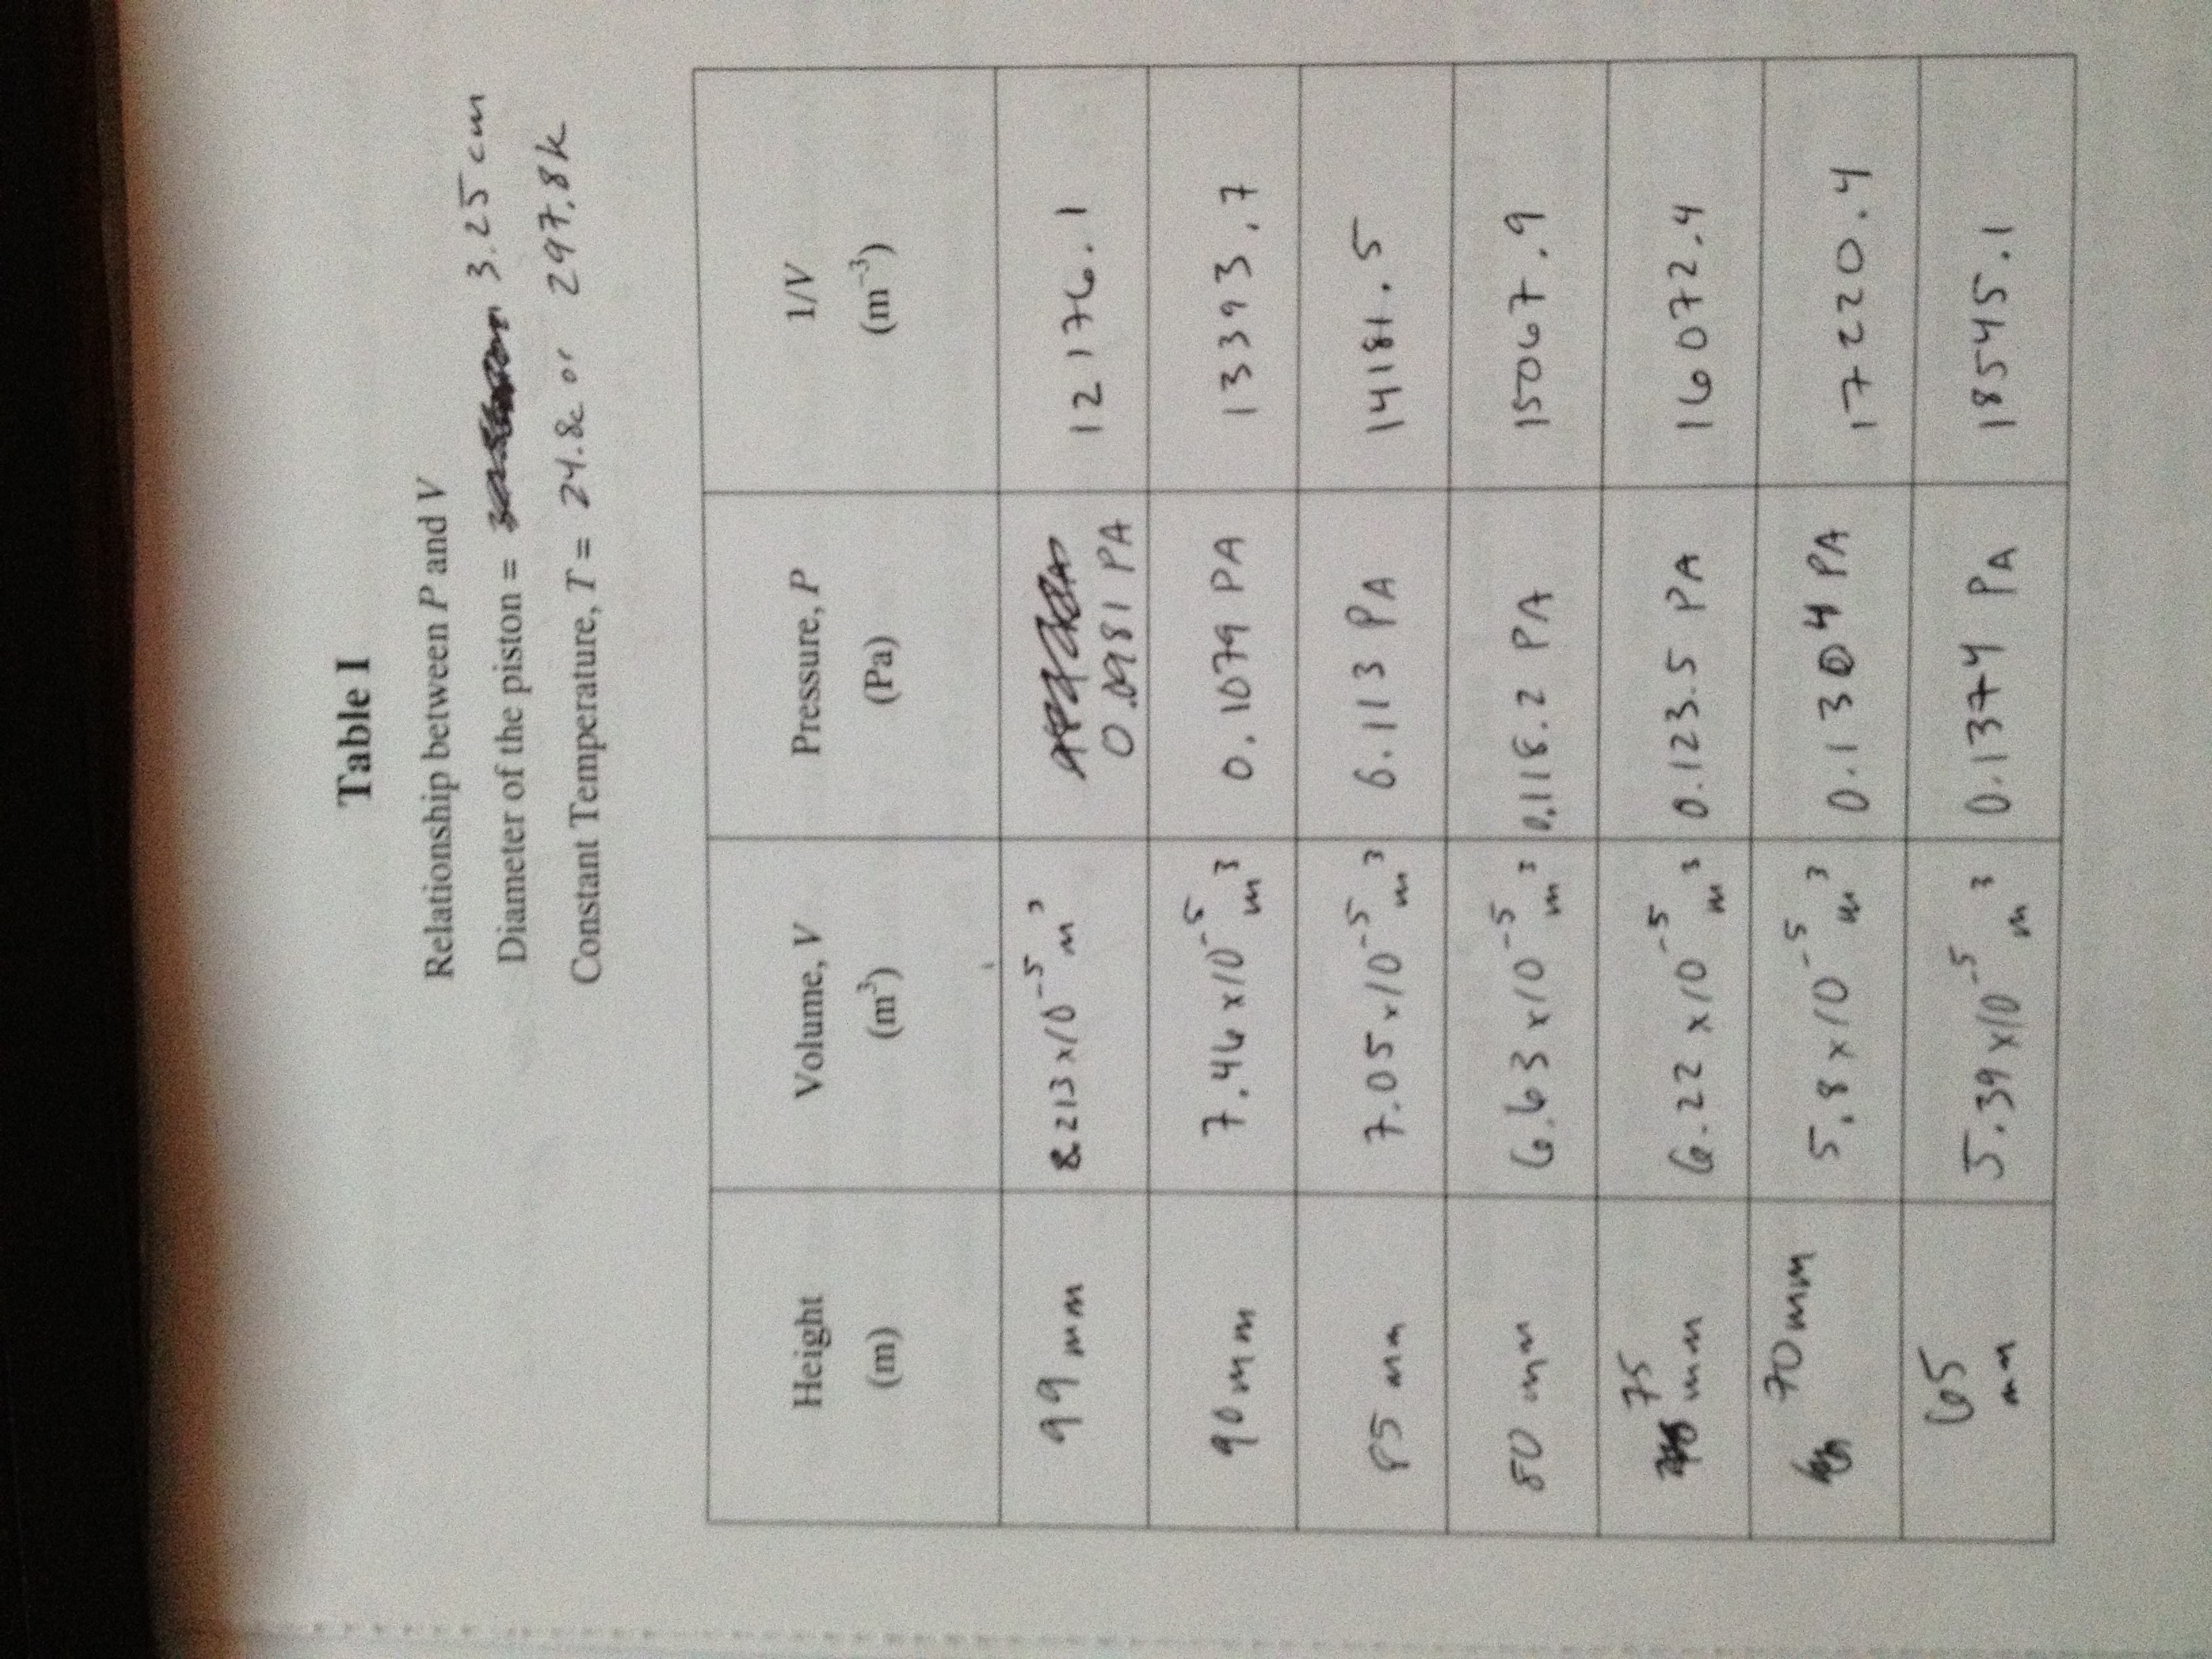 Table I
Relationship between P and V
Diameter of the piston = 3.25 cm
Constant Temperature, T = 24.8c or 297.8k
Height (m) Volume, V (m³) Pressure, P (Pa) 1/V (m⁻³)
99 mm 8.213 x10⁻⁵ m³ 0.0981 PA 12176.1
90 mm 7.46 x10⁻⁵ m³ 0.1079 PA 13393.7
85 mm 7.05 x10⁻⁵ m³ 0.113 PA 14181.5
80 mm 6.63 x10⁻⁵ m³ 0.118.2 PA 15067.9
75 mm 6.22 x10⁻⁵ m³ 0.123.5 PA 16072.4
70mm 5.8 x10⁻⁵ m³ 0.1304 PA 17220.4
65 mm 5.39 x10⁻⁵ m³ 0.1374 PA 18545.1